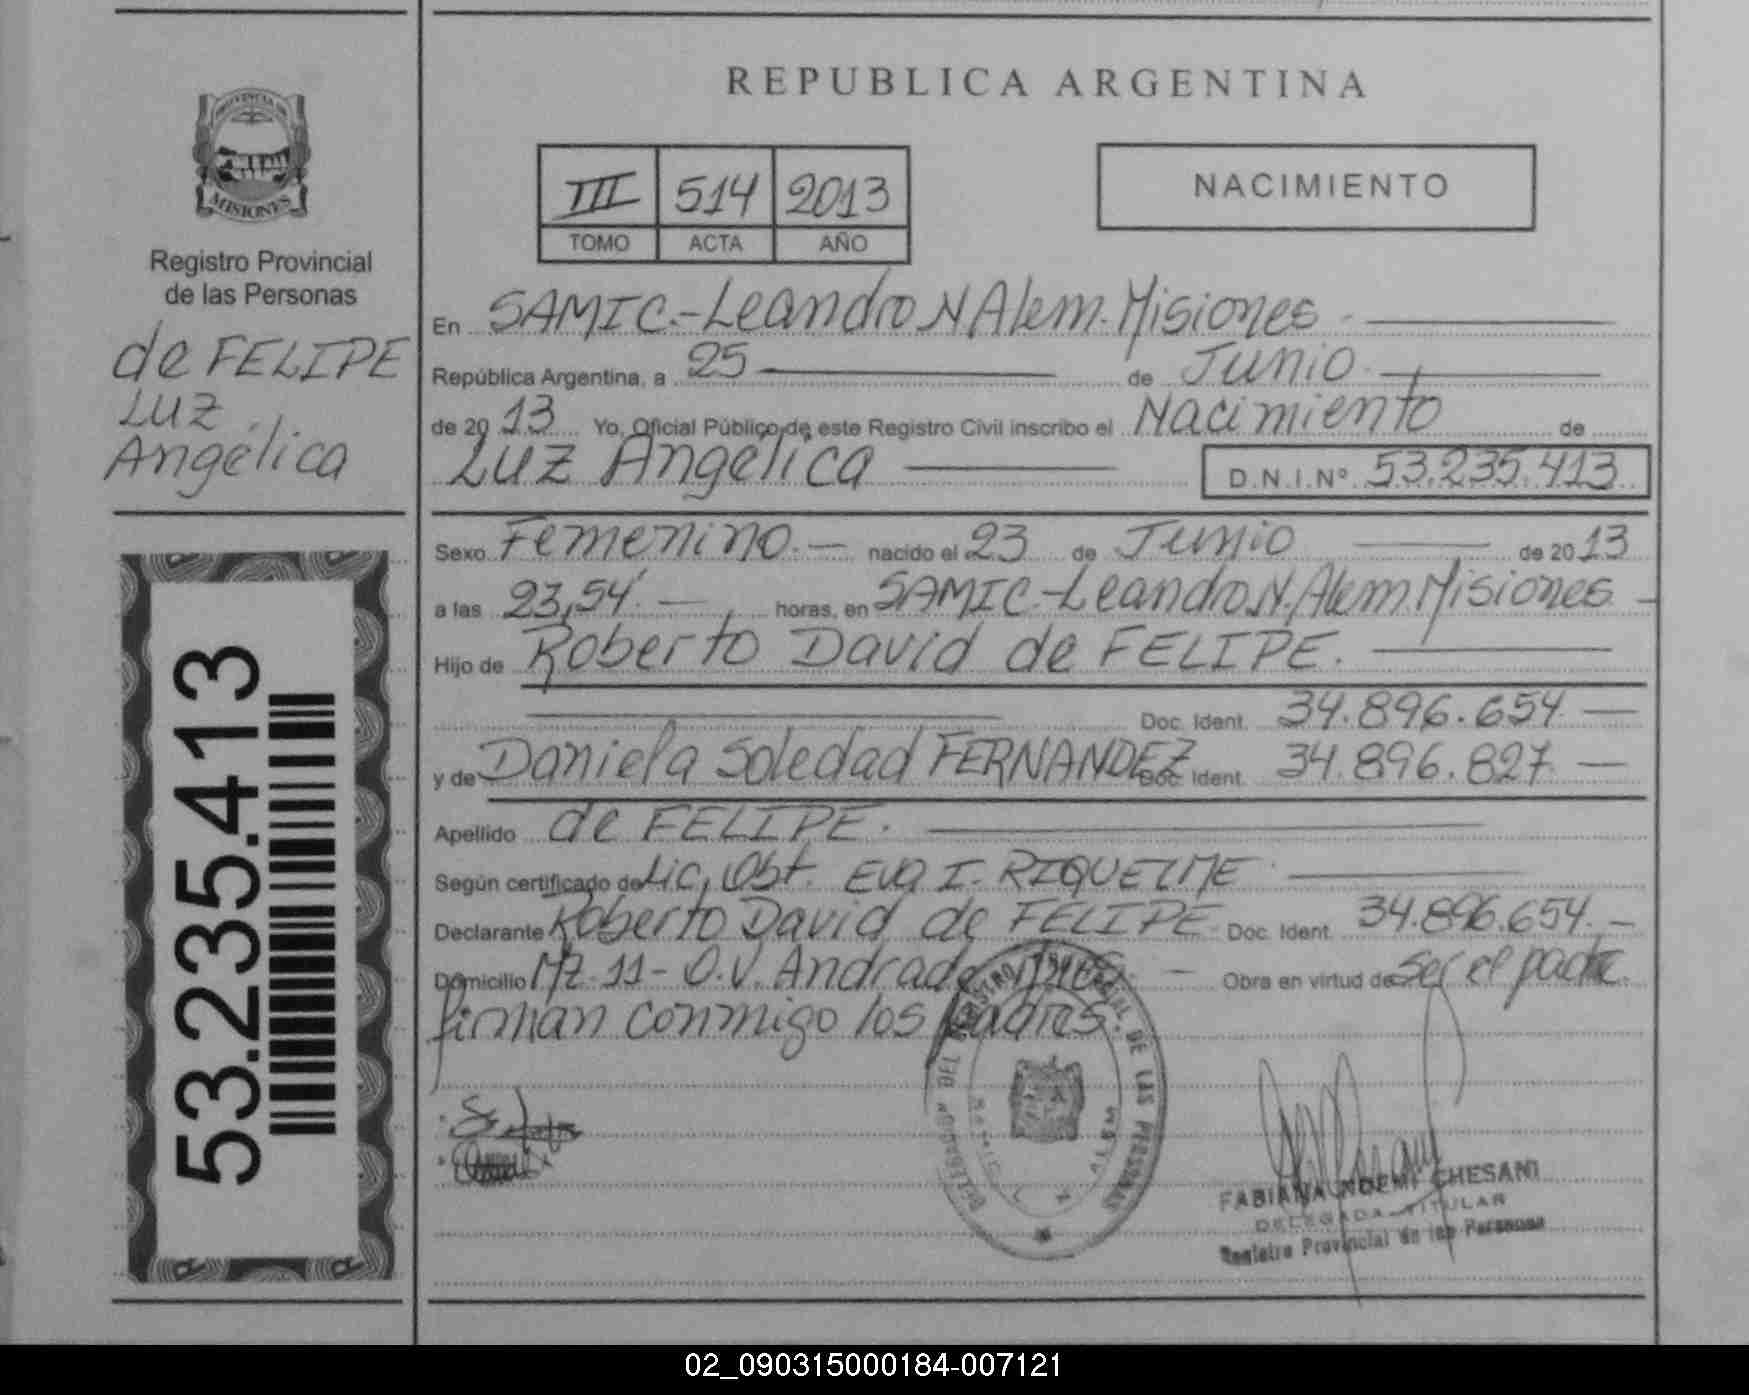 REPUBLICA ARGENTINA
PROVINCIA DE
MISIONES
Registro Provincial
de las Personas
de FELIPE
LUZ
Angélica
53.235.413
III 514 2013
TOMO ACTA AÑO
NACIMIENTO
En SAMIC.-Leandro N Alem. Misiones
República Argentina, a 25 de Junio
de 2013 Yo, Oficial Público de este Registro Civil inscribo el Nacimiento de
LUZ Angélica D.N.I.Nº 53.235.413
Sexo Femenino.- nacido el 23 de Junio de 2013
a las 23,54'.- horas, en SAMIC-Leandro N. Alem. Misiones
Hijo de Roberto David de FELIPE.
Doc. Ident. 34.896.654
y de Daniela Soledad FERNANDEZ Doc. Ident. 34.896.827
Apellido de FELIPE.
Según certificado de Lic. Obst. Eva I. RIQUELME
Declarante Roberto David de FELIPE Doc. Ident. 34.896.654.-
Domicilio Mz-11- O.V. Andrade Obra en virtud de ser el padre.
firman conmigo los padres.
DEL REGISTRO PROVINCIAL DE LAS PERSONAS
FABIANA NOEMI CHESANI
DELEGADA TITULAR
Registro Provincial de las Personas
02_090315000184-007121